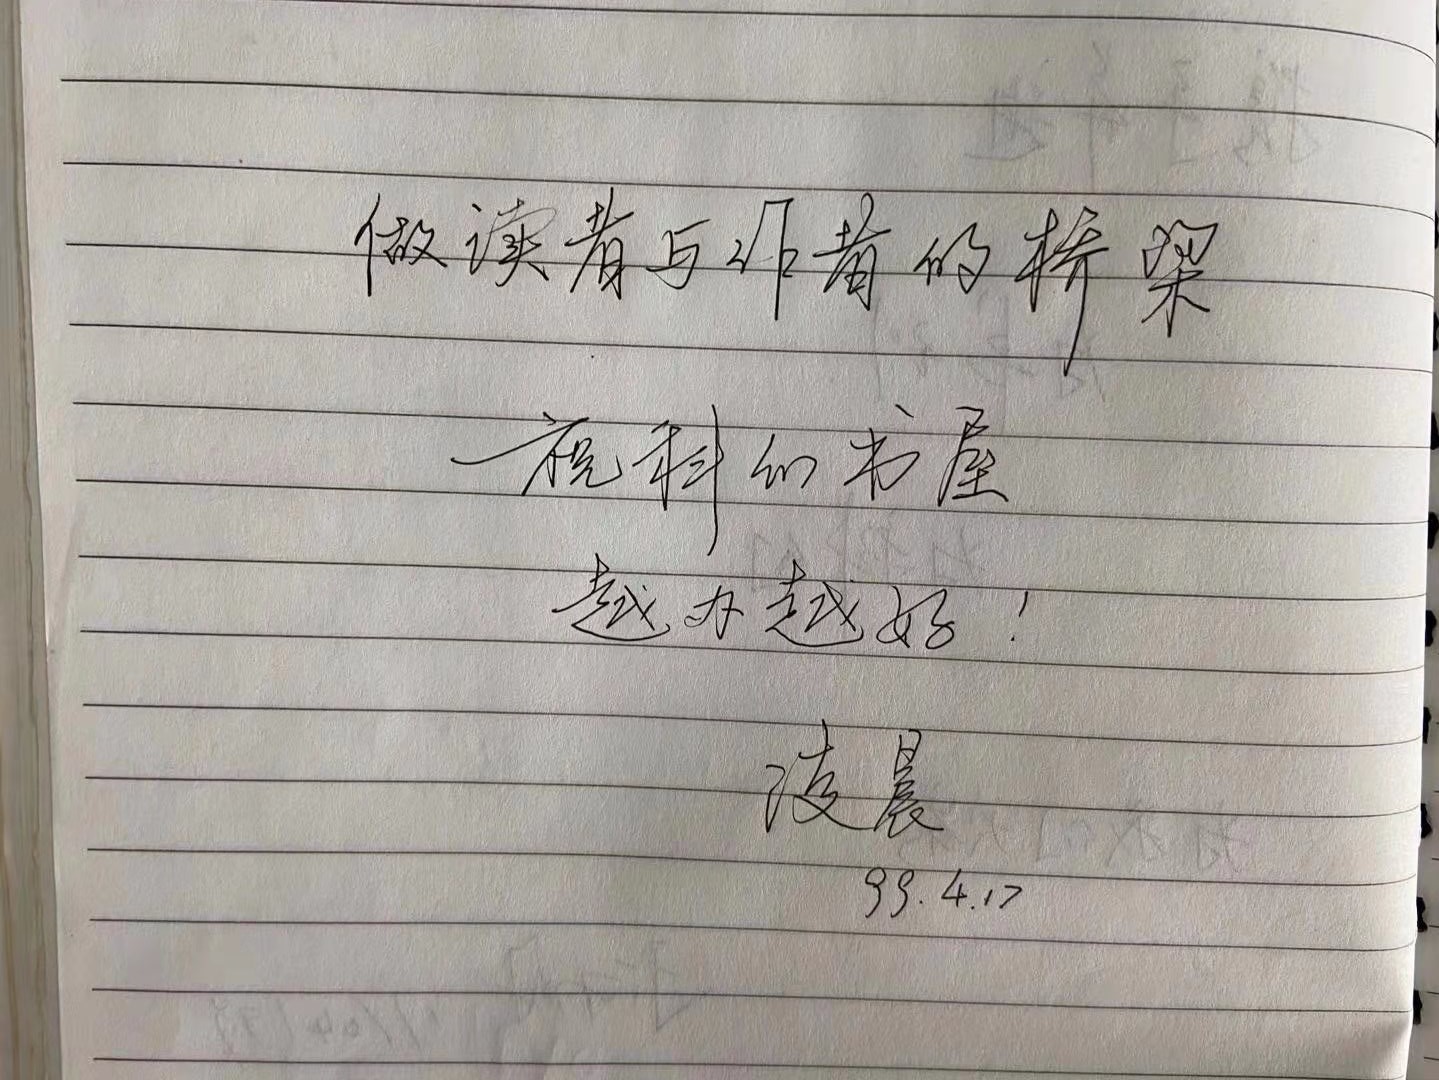 做读者与作者的桥梁
—祝科幻书屋
越办越好!
凌晨
99.4.17